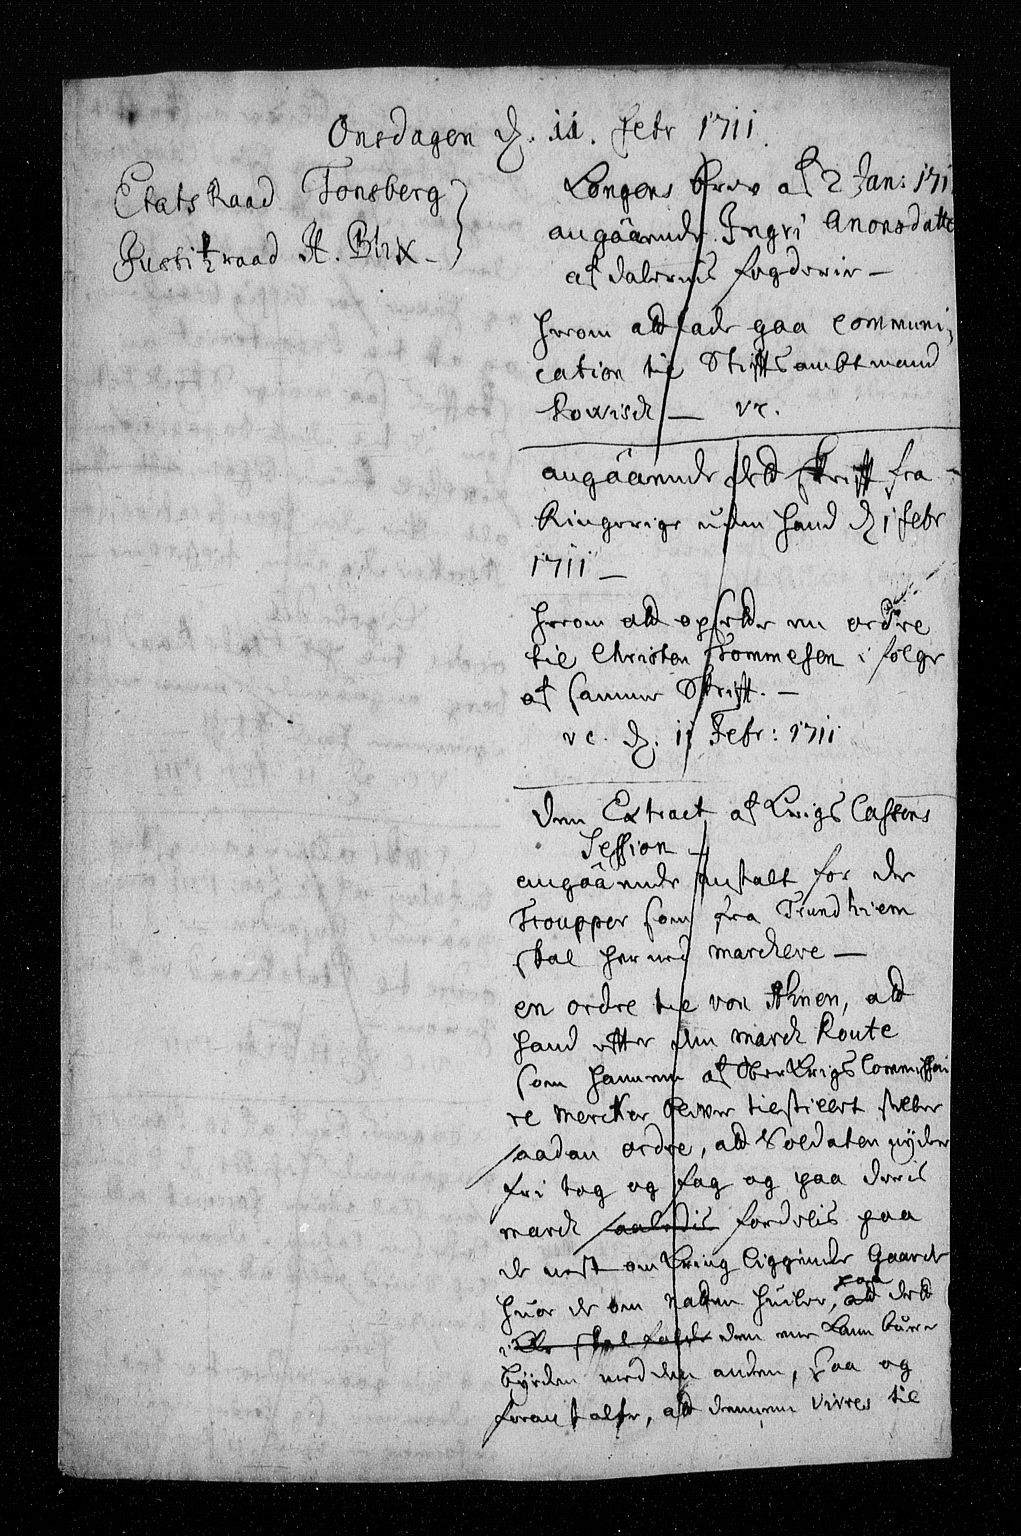 Onsdagen d. 11. Febr 1711.
Etats Raad Tonsberg
Justitzraad H. Blix
Kongens brev af 2 Jan: 171
angaaende Ingri Anonsdatte
af dalernis fogderie –
herom att lade gaa communi;
cation til Stiftsambtmand
– vc.
angaaende dett skrifft fra
Ringerige uden hand d. 1 Febr
1711 –
herom att opsette en ordre
til Christen Trommesen i følge
af samme Skrifft. –
vc. d. 11 Febr: 1711
Den Extract af Krigs Cassens
Session –
angaaende anstalt for de
Troupper som fra Trundhiem
skal her ned marchere –
en ordre til von Ahnen, att
hand efter den march Route
som hannem af OberKrigsCommissai
re Mercker bliver tilstillet steller
saadan ordre, att Soldaten nyder
fri tag og fag og paa deris
march saaledis fordelis paa
de nest omkring liggende Gaarde
huor de om natten huiler, att dett
dem ene kand bære
byrden med den anden, saa og
foranstalte, att dennem vivres til